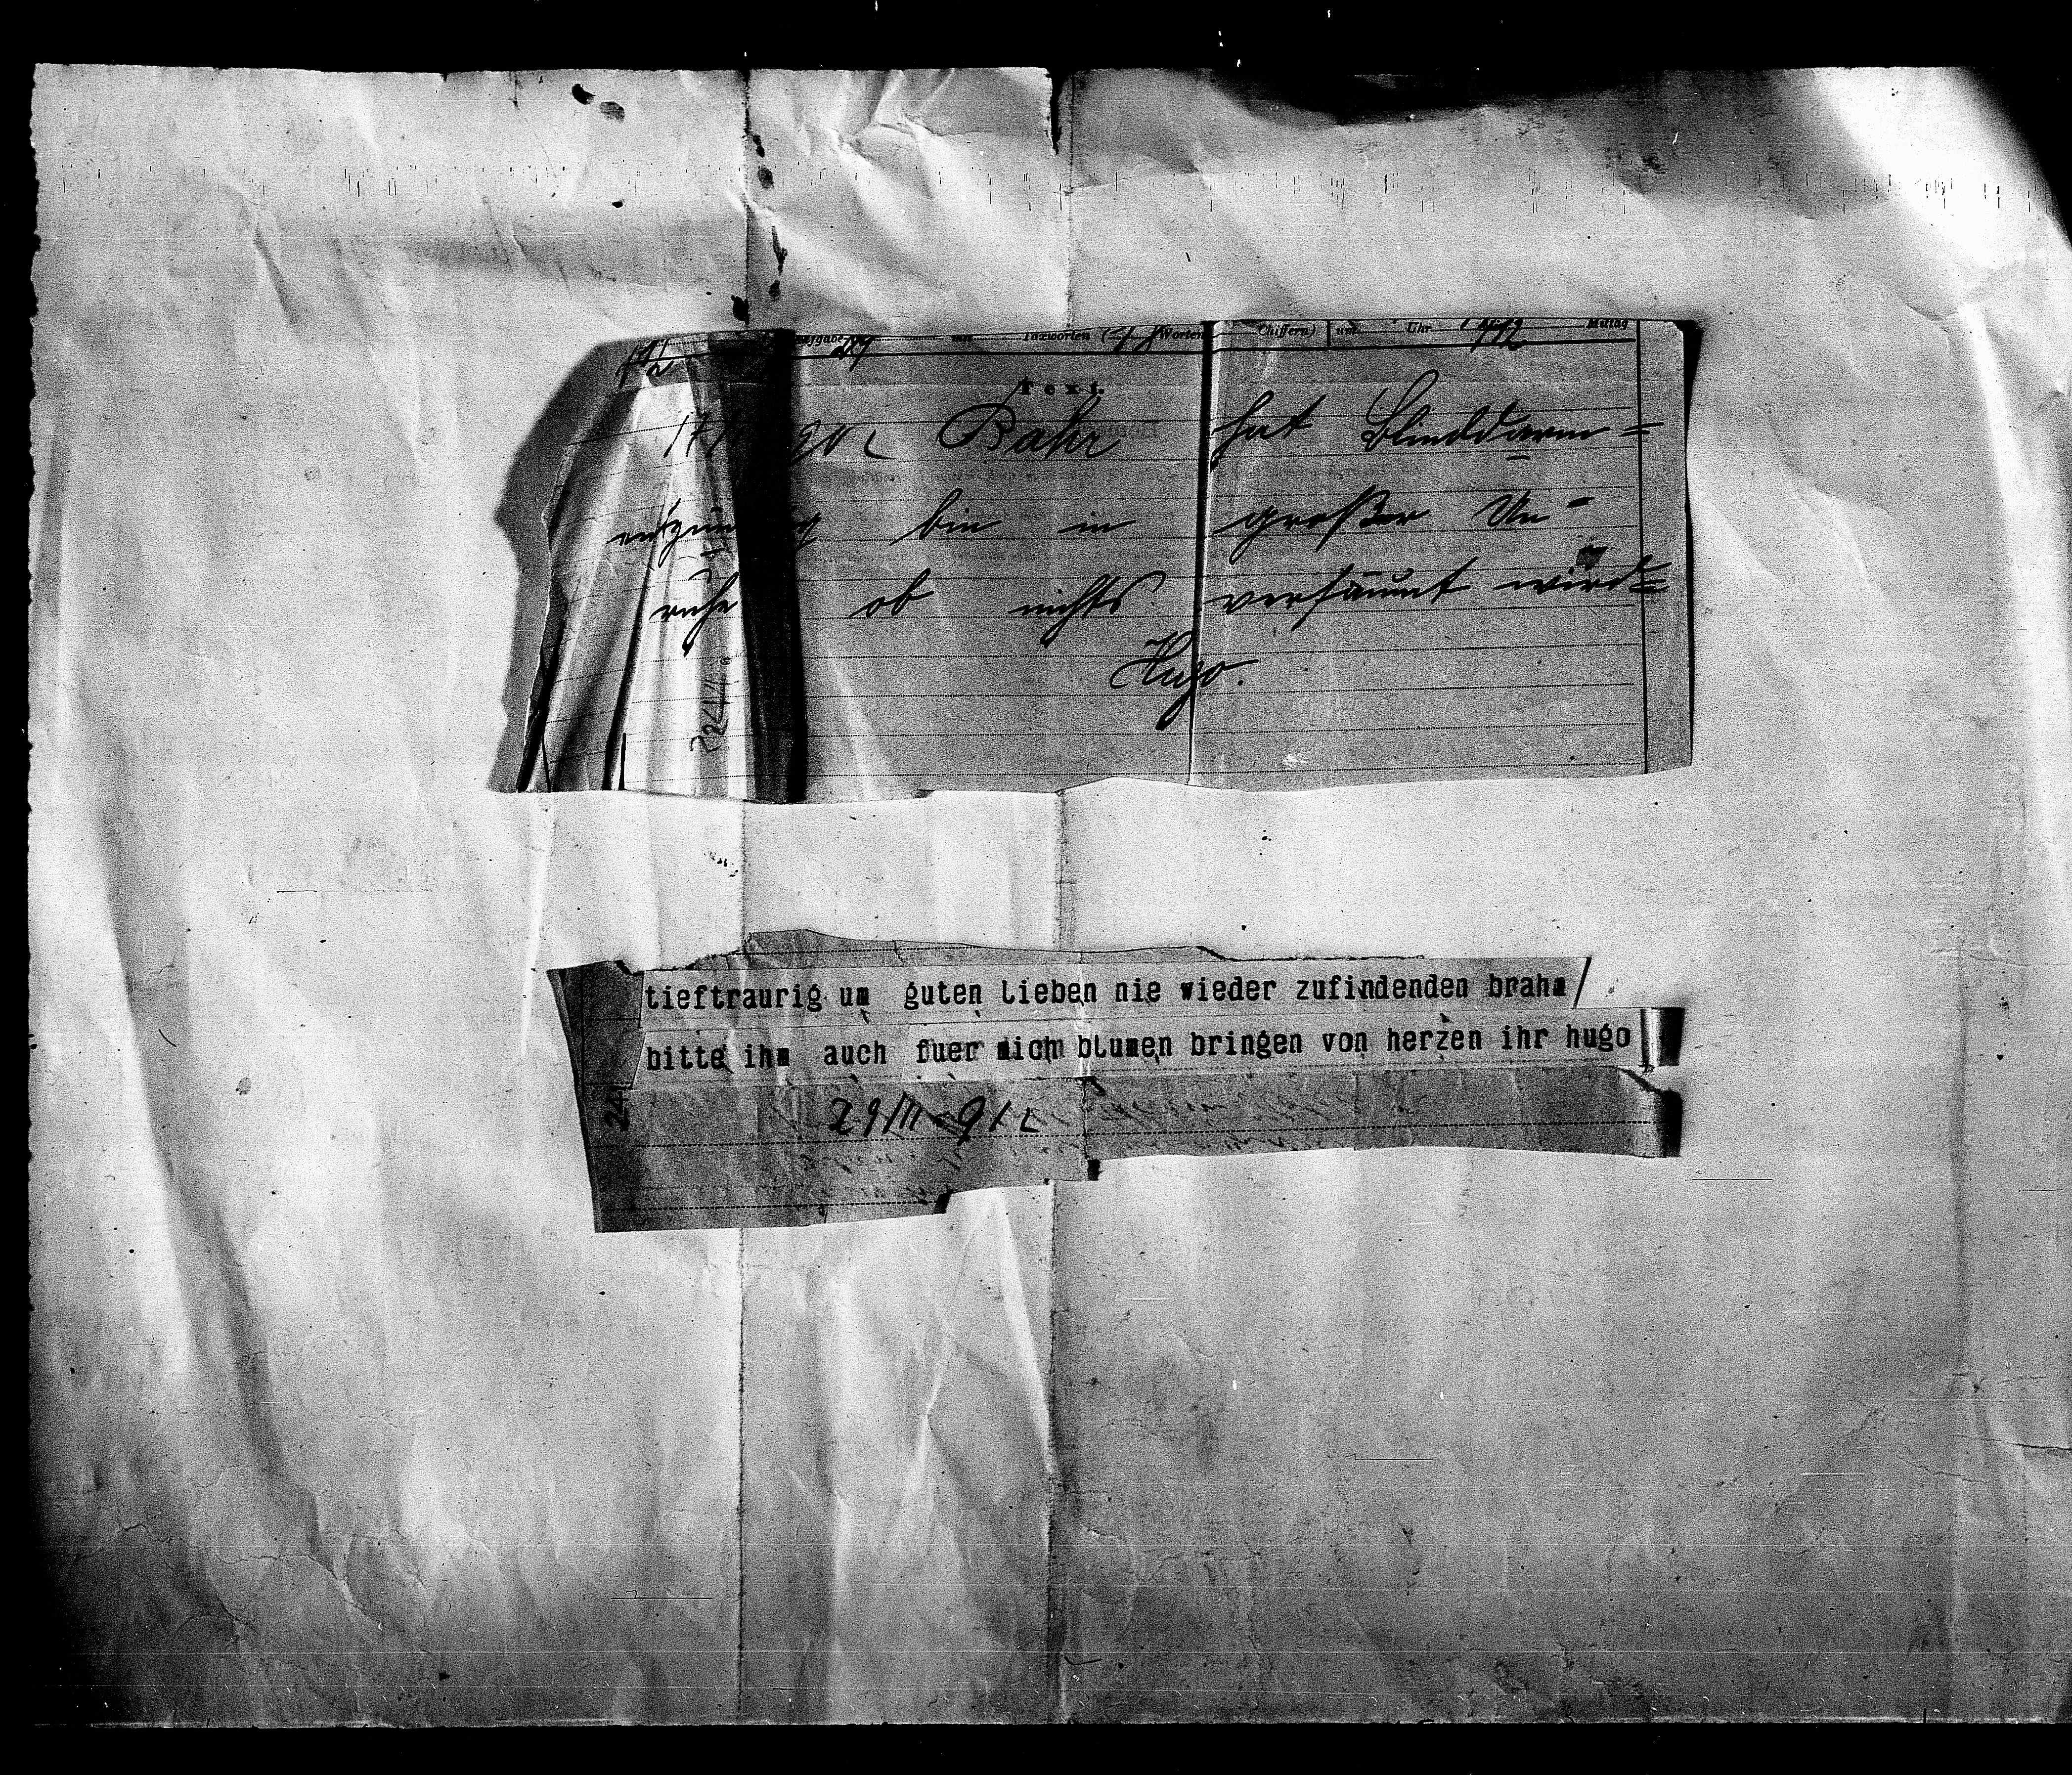 Taxworten ( Worten Chiffern) um Uhr Mittag
Text.
Bahr hat Blinddarm=
bin in großer Un-
ruhe ob nichts versäumt wird=
Hugo.
2244
tieftraurig um guten lieben nie wieder zufindenden brahm/
bitte ihm auch fuer mich blumen bringen von herzen ihr hugo
24